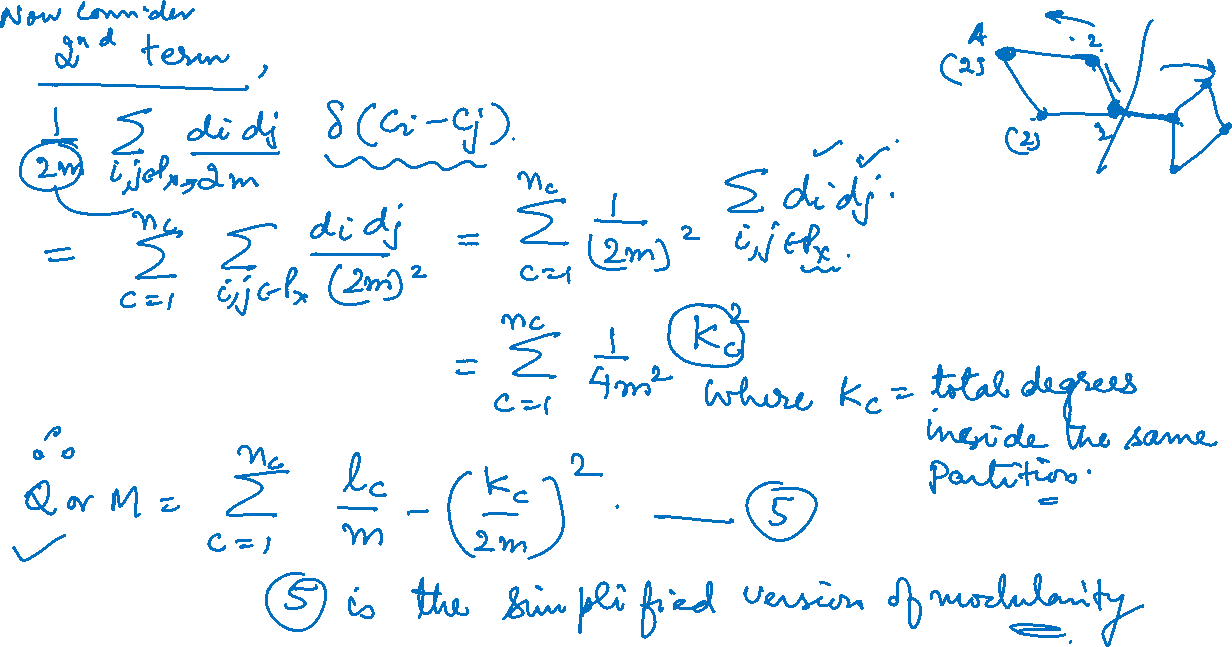 Now Consider
2nd term,
1/2m Σ_{i,j∈P_x} d_i d_j/2m δ(C_i - C_j).
= Σ_{c=1}^{n_c} Σ_{i,j∈P_x} d_i d_j/(2m)² = Σ_{c=1}^{n_c} 1/(2m)² Σ_{i,j∈P_x} d_i d_j.
= Σ_{c=1}^{n_c} 1/4m² K_c² where K_c = total degrees
inside the same
Partition.
∴ Q or M = Σ_{c=1}^{n_c} l_c/m - (K_c/2m)². — ⑤
⑤ is the simplified version of modularity
A
(2)
2
(2)
3